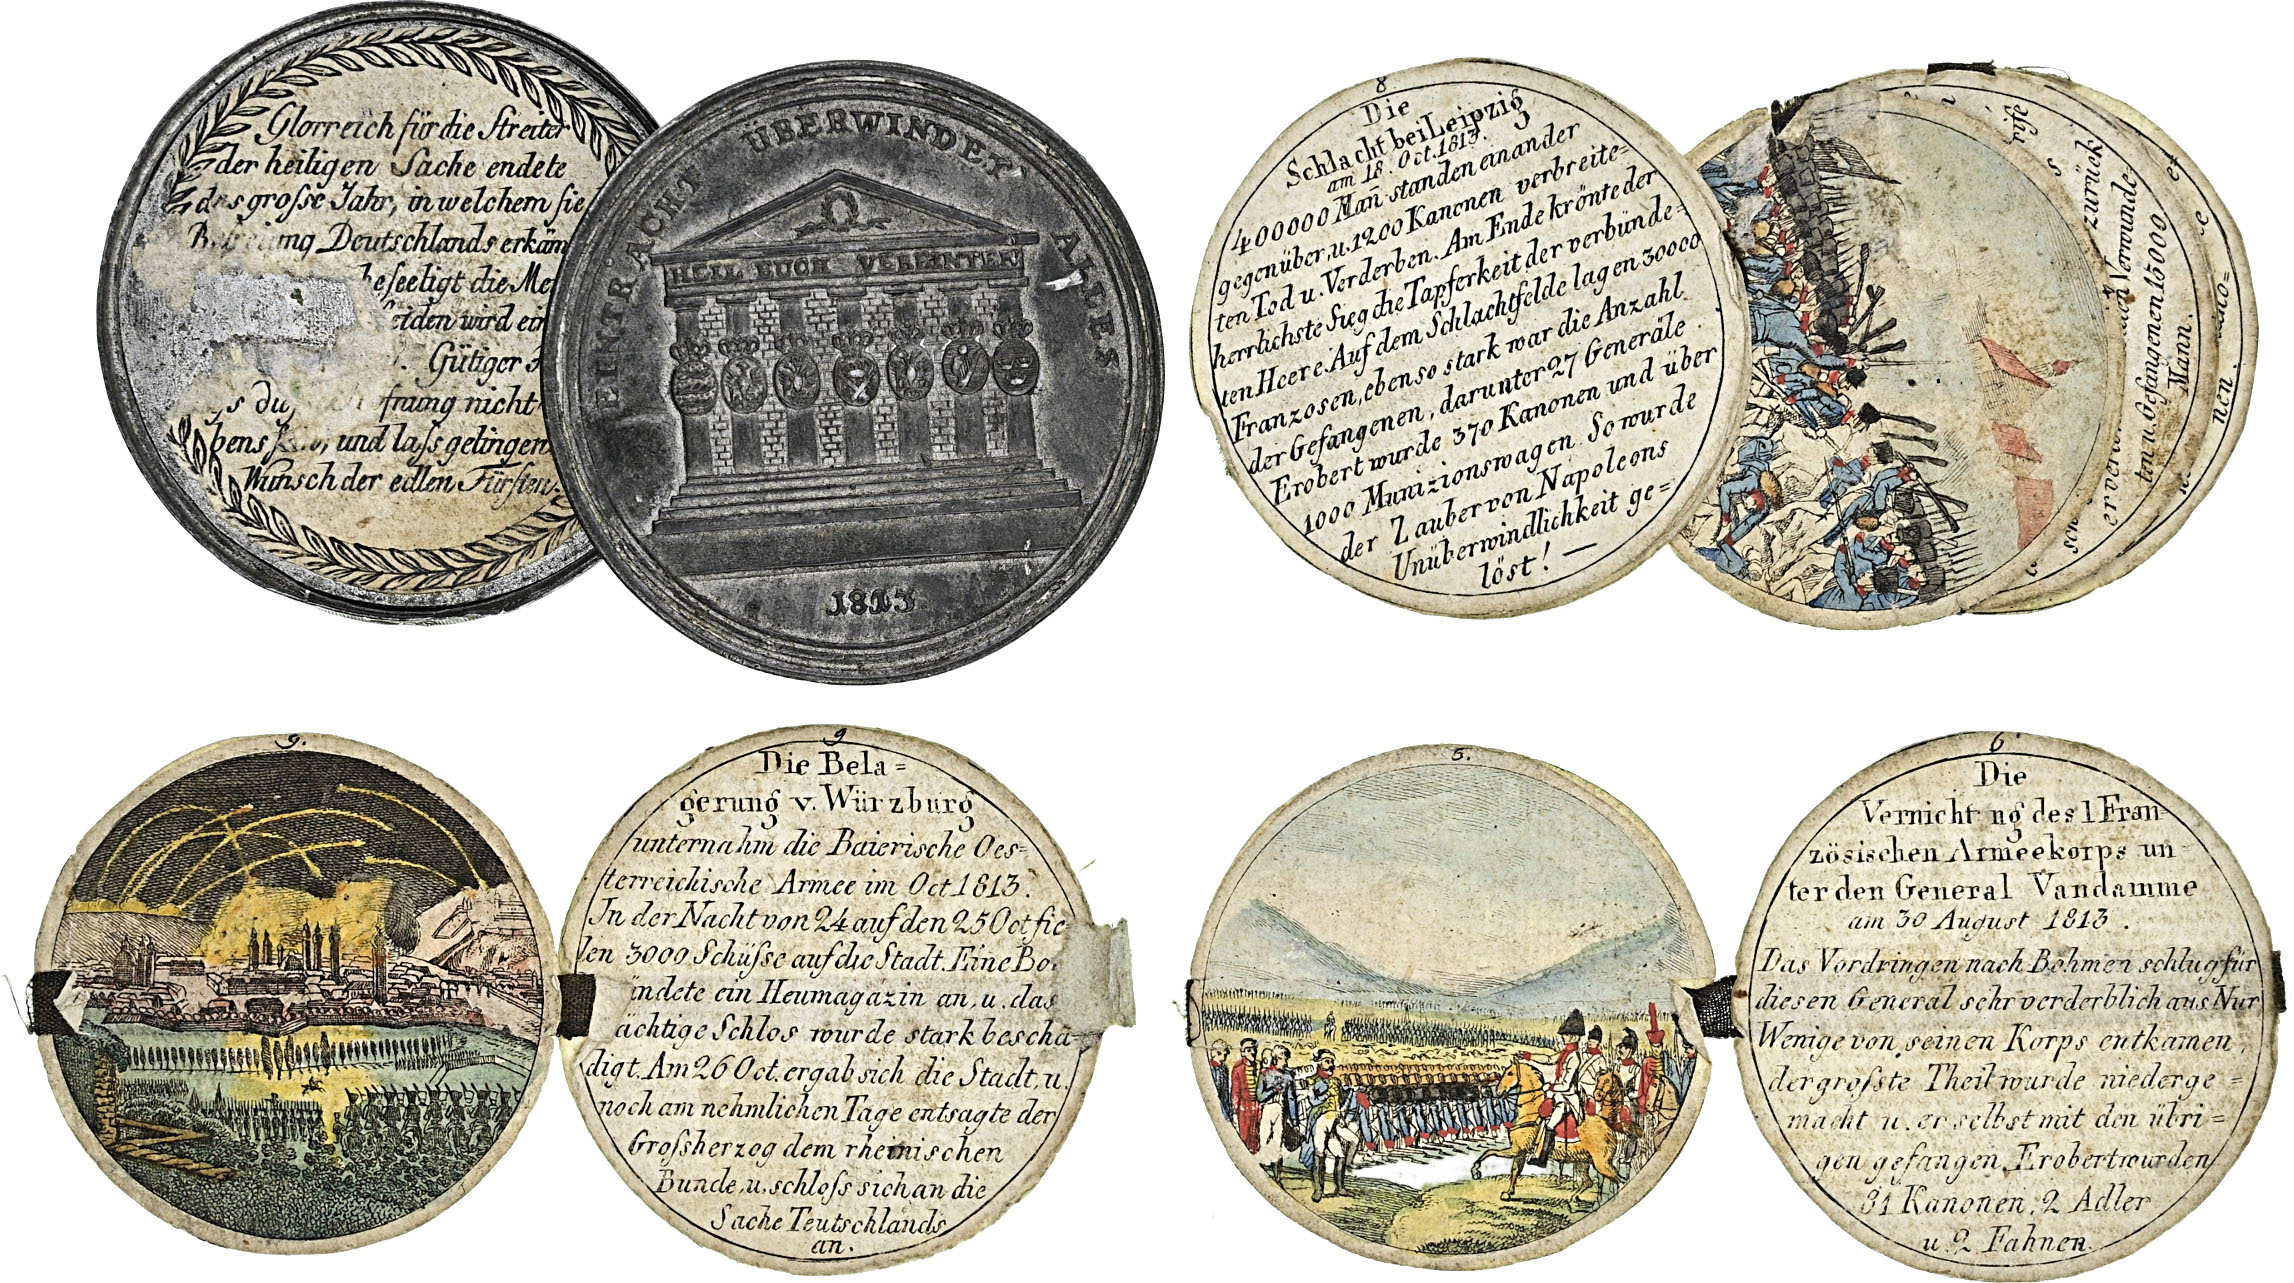 Glorreich für die Streiter
der heiligen Sache endete
das grosse Jahr, in welchem sie
Deutschlands erkäm
beseeligt die Me
eiden wird ein
Gütiger
s du frung nicht
bens und lass gelingen
Wunsch der edlen Fürsten.
EINTRÄCHT ÜBERWINDET ALLES
HEIL EUCH VEREINTEN
1813
8
Die
Schlacht bei Leipzig
am 18. Oct. 1813.
400000 Man̄ standen einander
gegenüber, u. 1200 Kanonen verbreite=
ten Tod u. Verderben. Am Ende krönte der
herrlichste Sieg die Tapferkeit der verbünde=
ten Heere. Auf dem Schlachtfelde lagen 30000
Franzosen, eben so stark war die Anzahl
der Gefangenen, darunter 27 Generäle.
Erobert wurde 370 Kanonen und über
1000 Munizionswagen. So wurde
der Zauber von Napoleons
Unüberwindlichkeit ge=
löst! —
zurück
Verwunde=
ten u. Gefangenen 15000
Mann.
nen.
9.
9
Die Bela=
gerung v. Würzburg
unternahm die Baierische Oes=
terreichische Armee im Oct 1813.
In der Nacht von 24 auf den 25 Oct fie
len 3000 Schüsse auf die Stadt. Eine Bo.
ündete ein Heumagazin an, u. das
ächtige Schlos wurde stark beschä
digt. Am 26 Oct. ergab sich die Stadt, u.
noch am nehmlichen Tage entsagte der
Grossherzog dem rheinischen
Bunde, u. schloss sich an die
Sache Teutschlands
an.
5.
6
Die
Vernicht ng des 1 Fran
zösischen Armeekorps un
ter den General Vandamme
am 30 August 1813.
Das Vordringen nach Böhmen schlug für
diesen General sehr verderblich aus Nur
Wenige von seinen Korps entkamen,
der grosste Theil wurde niederge=
macht u. er selbst mit den übri=
gen gefangen. Erobert wurden
81 Kanonen, 2 Adler
u. 2 Fahnen.